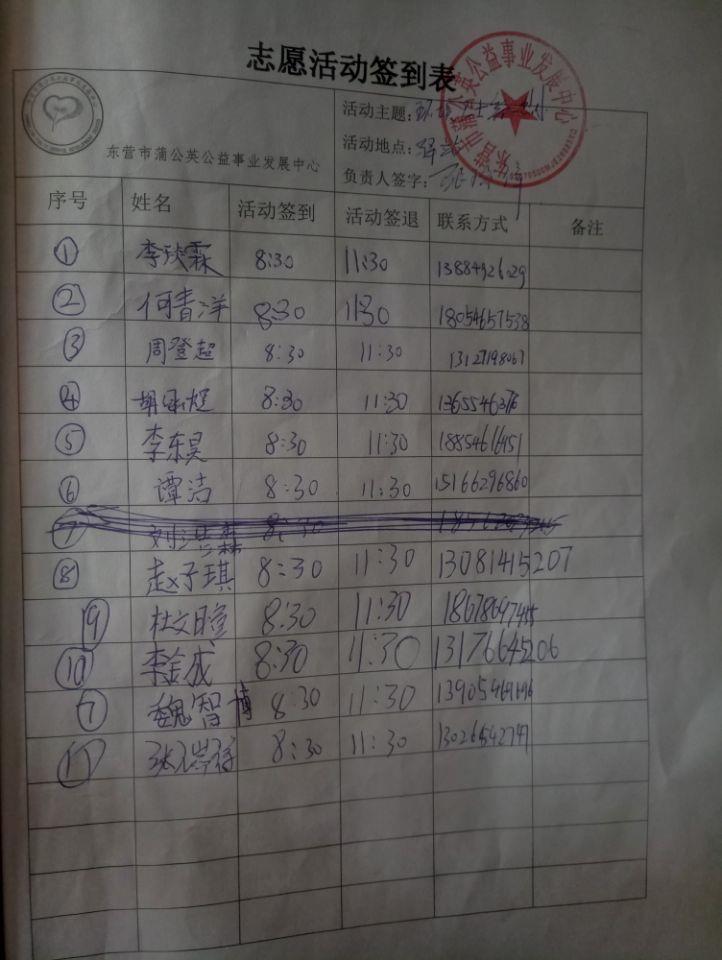 志愿活动签到表
东营市蒲公英公益事业发展中心
活动主题:
活动地点:
负责人签字:
东营市蒲公英公益事业发展中心
序号 姓名 活动签到 活动签退 联系方式 备注
① 李欣霖 8:30 11:30 13884926029
② 何青洋 8:30 11:30 18054657538
③ 周登超 8:30 11:30 13127198067
④ 8:30 11:30
⑤ 李东昊 8:30 11:30
⑥ 谭洁 8:30 11:30 15166296860
⑦ 8:30
⑧ 赵子琪 8:30 11:30 13081415207
⑨ 杜文暄 8:30 11:30
⑩ 李金成 8:30 11:30 13176645206
⑦ 魏智博 8:30 11:30
⑪ 8:30 11:30 13026542747